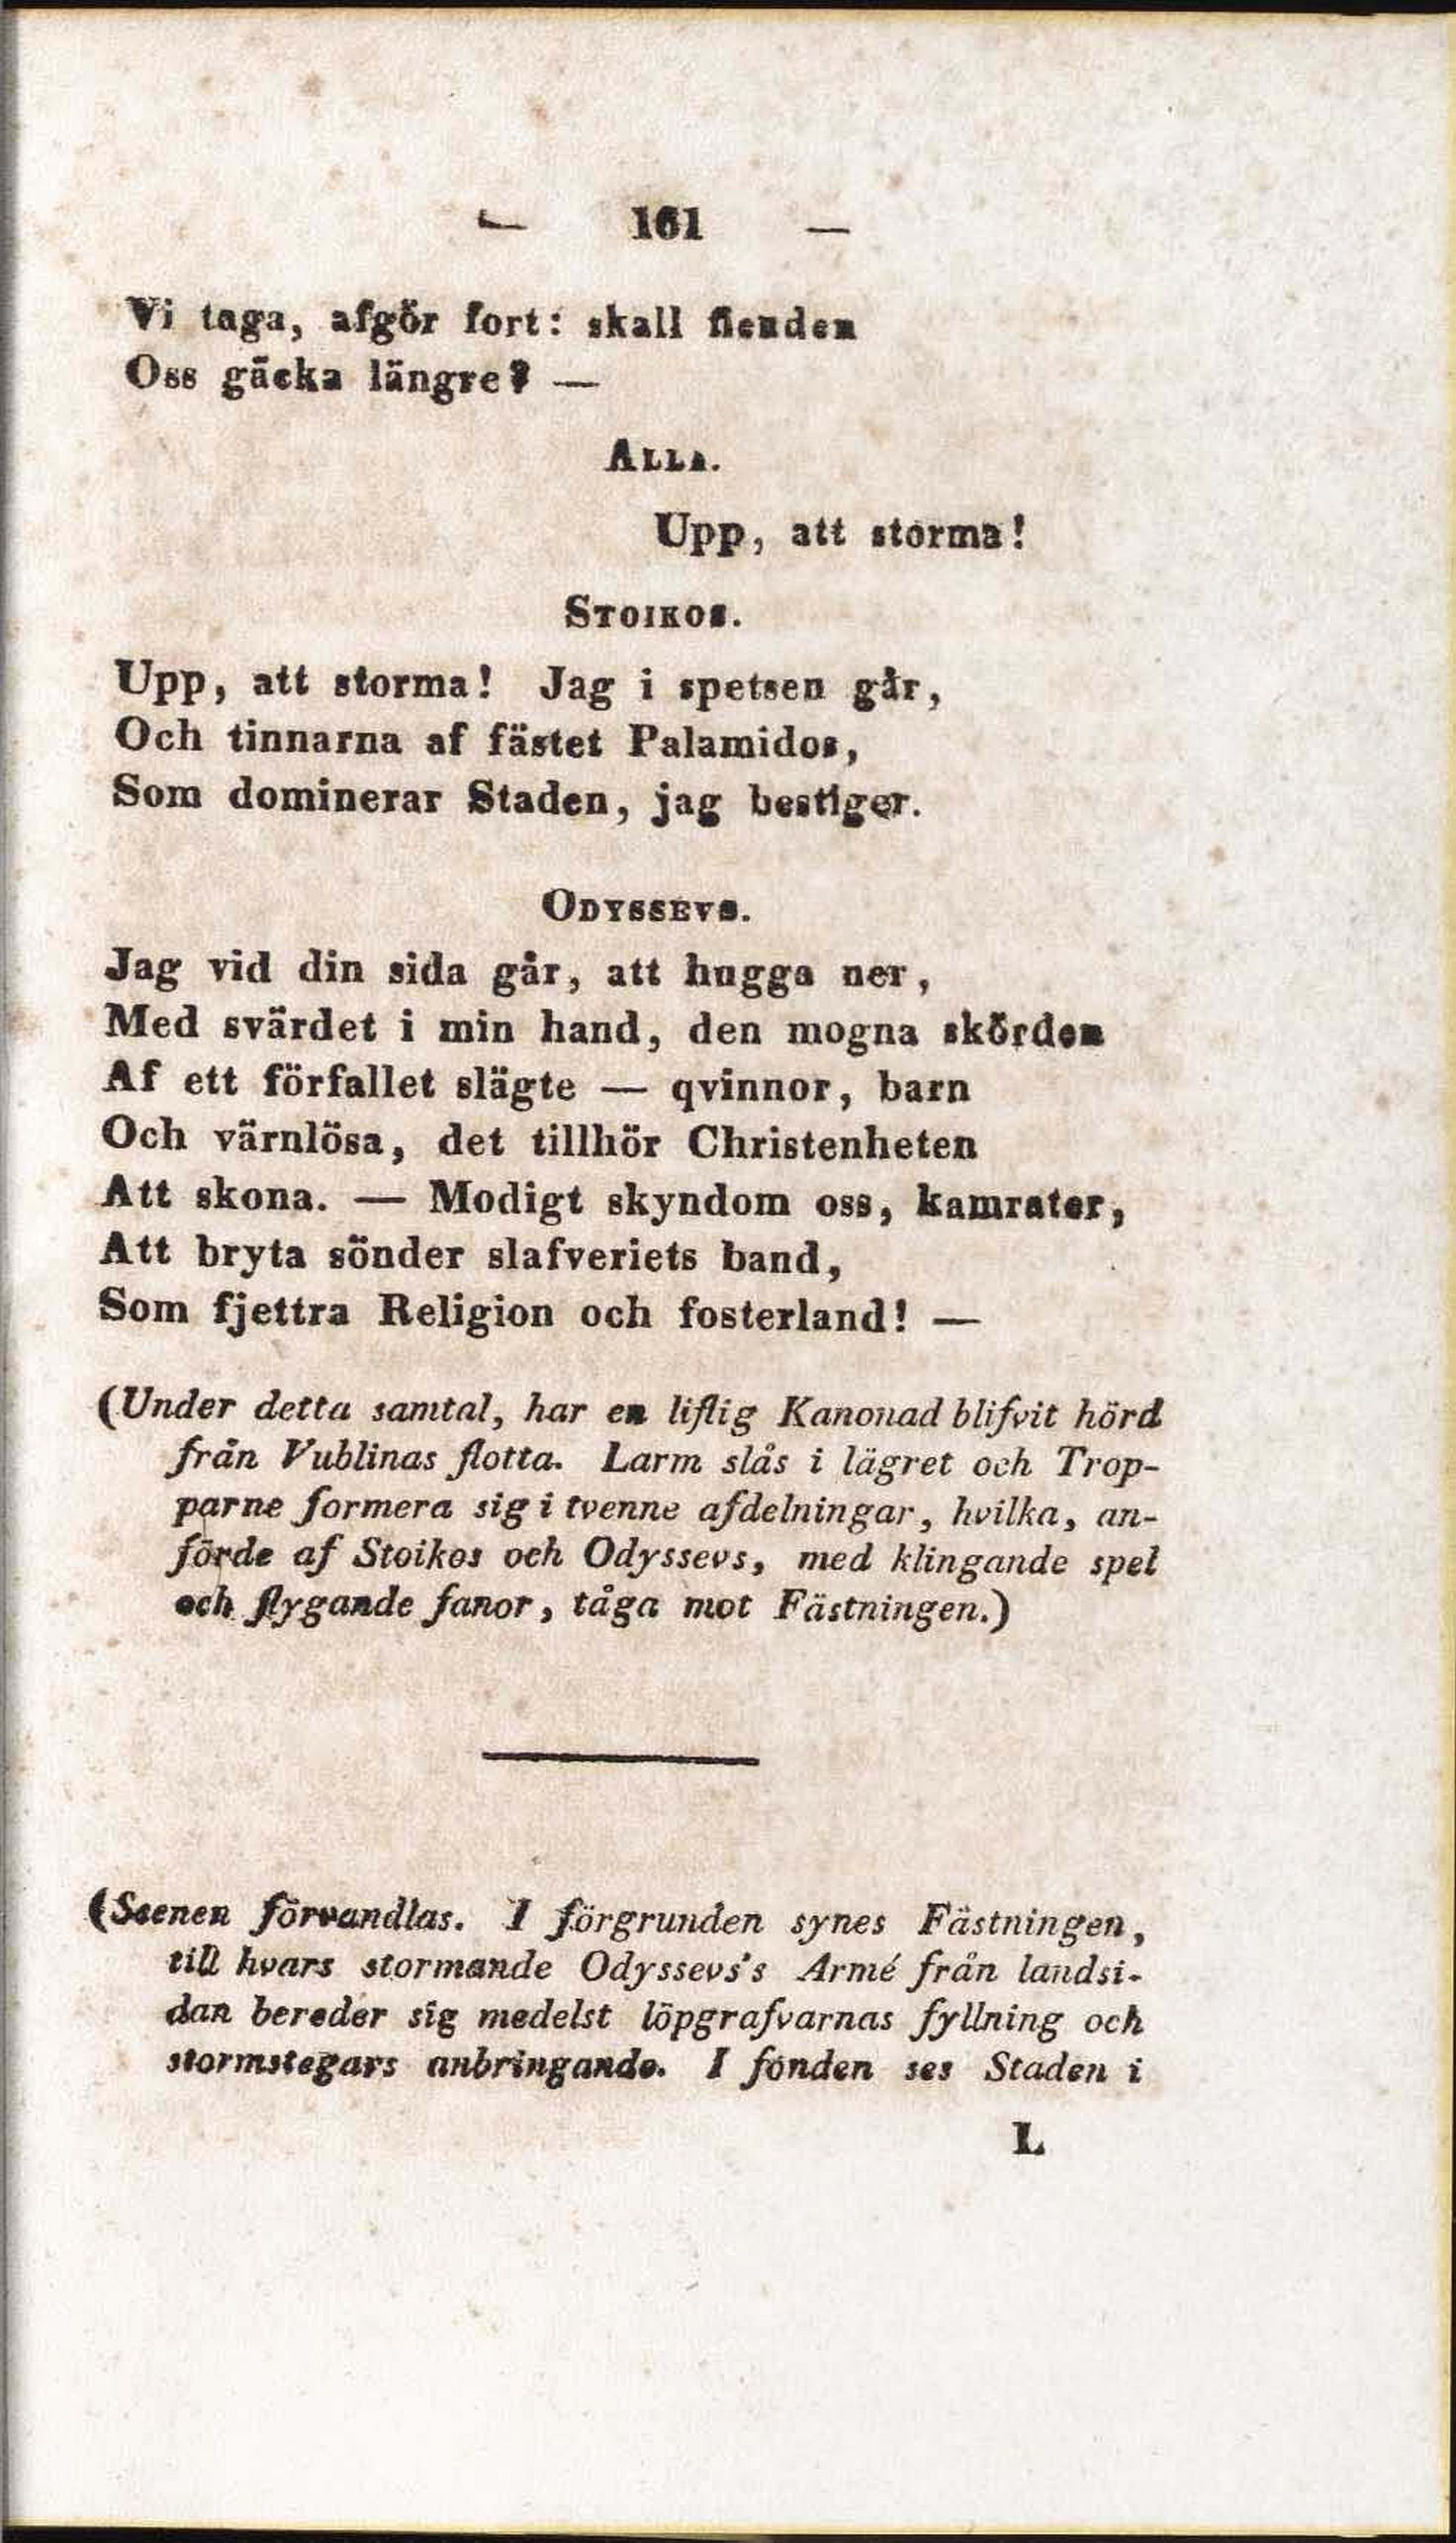 — 161 —
Vi taga, afgör fort: skall fienden
Oss gäcka längre? —
ALLA.
Upp, att storma!
STOIKOS.
Upp, att storma! Jag i spetsen går,
Och tinnarna af fästet Palamidos,
Som dominerar Staden, jag bestiger.
ODYSSEVS.
Jag vid din sida går, att hugga ner,
Med svärdet i min hand, den mogna skörden
Af ett förfallet slägte — qvinnor, barn
Och värnlösa, det tillhör Christenheten
Att skona. — Modigt skyndom oss, kamrater,
Att bryta sönder slafveriets band,
Som fjettra Religion och fosterland! —
(Under detta samtal, har en liflig Kanonad blifvit hörd
från Vublinas flotta. Larm slås i lägret och Trop-
parne formera sig i tvenne afdelningar, hvilka, an-
förde af Stoikos och Odyssevs, med klingande spel
och flygande fanor, tåga mot Fästningen.)
(Scenen förvandlas. I förgrunden synes Fästningen,
till hvars stormande Odyssevs's Armé från landsi-
dan bereder sig medelst löpgrafvarnas fyllning och
stormstegars anbringande. I fonden ses Staden i
L